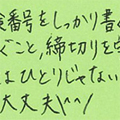 験番号をしっかり書く
ぐこと,締切りを守
はひとりじゃない
大丈夫\^^/